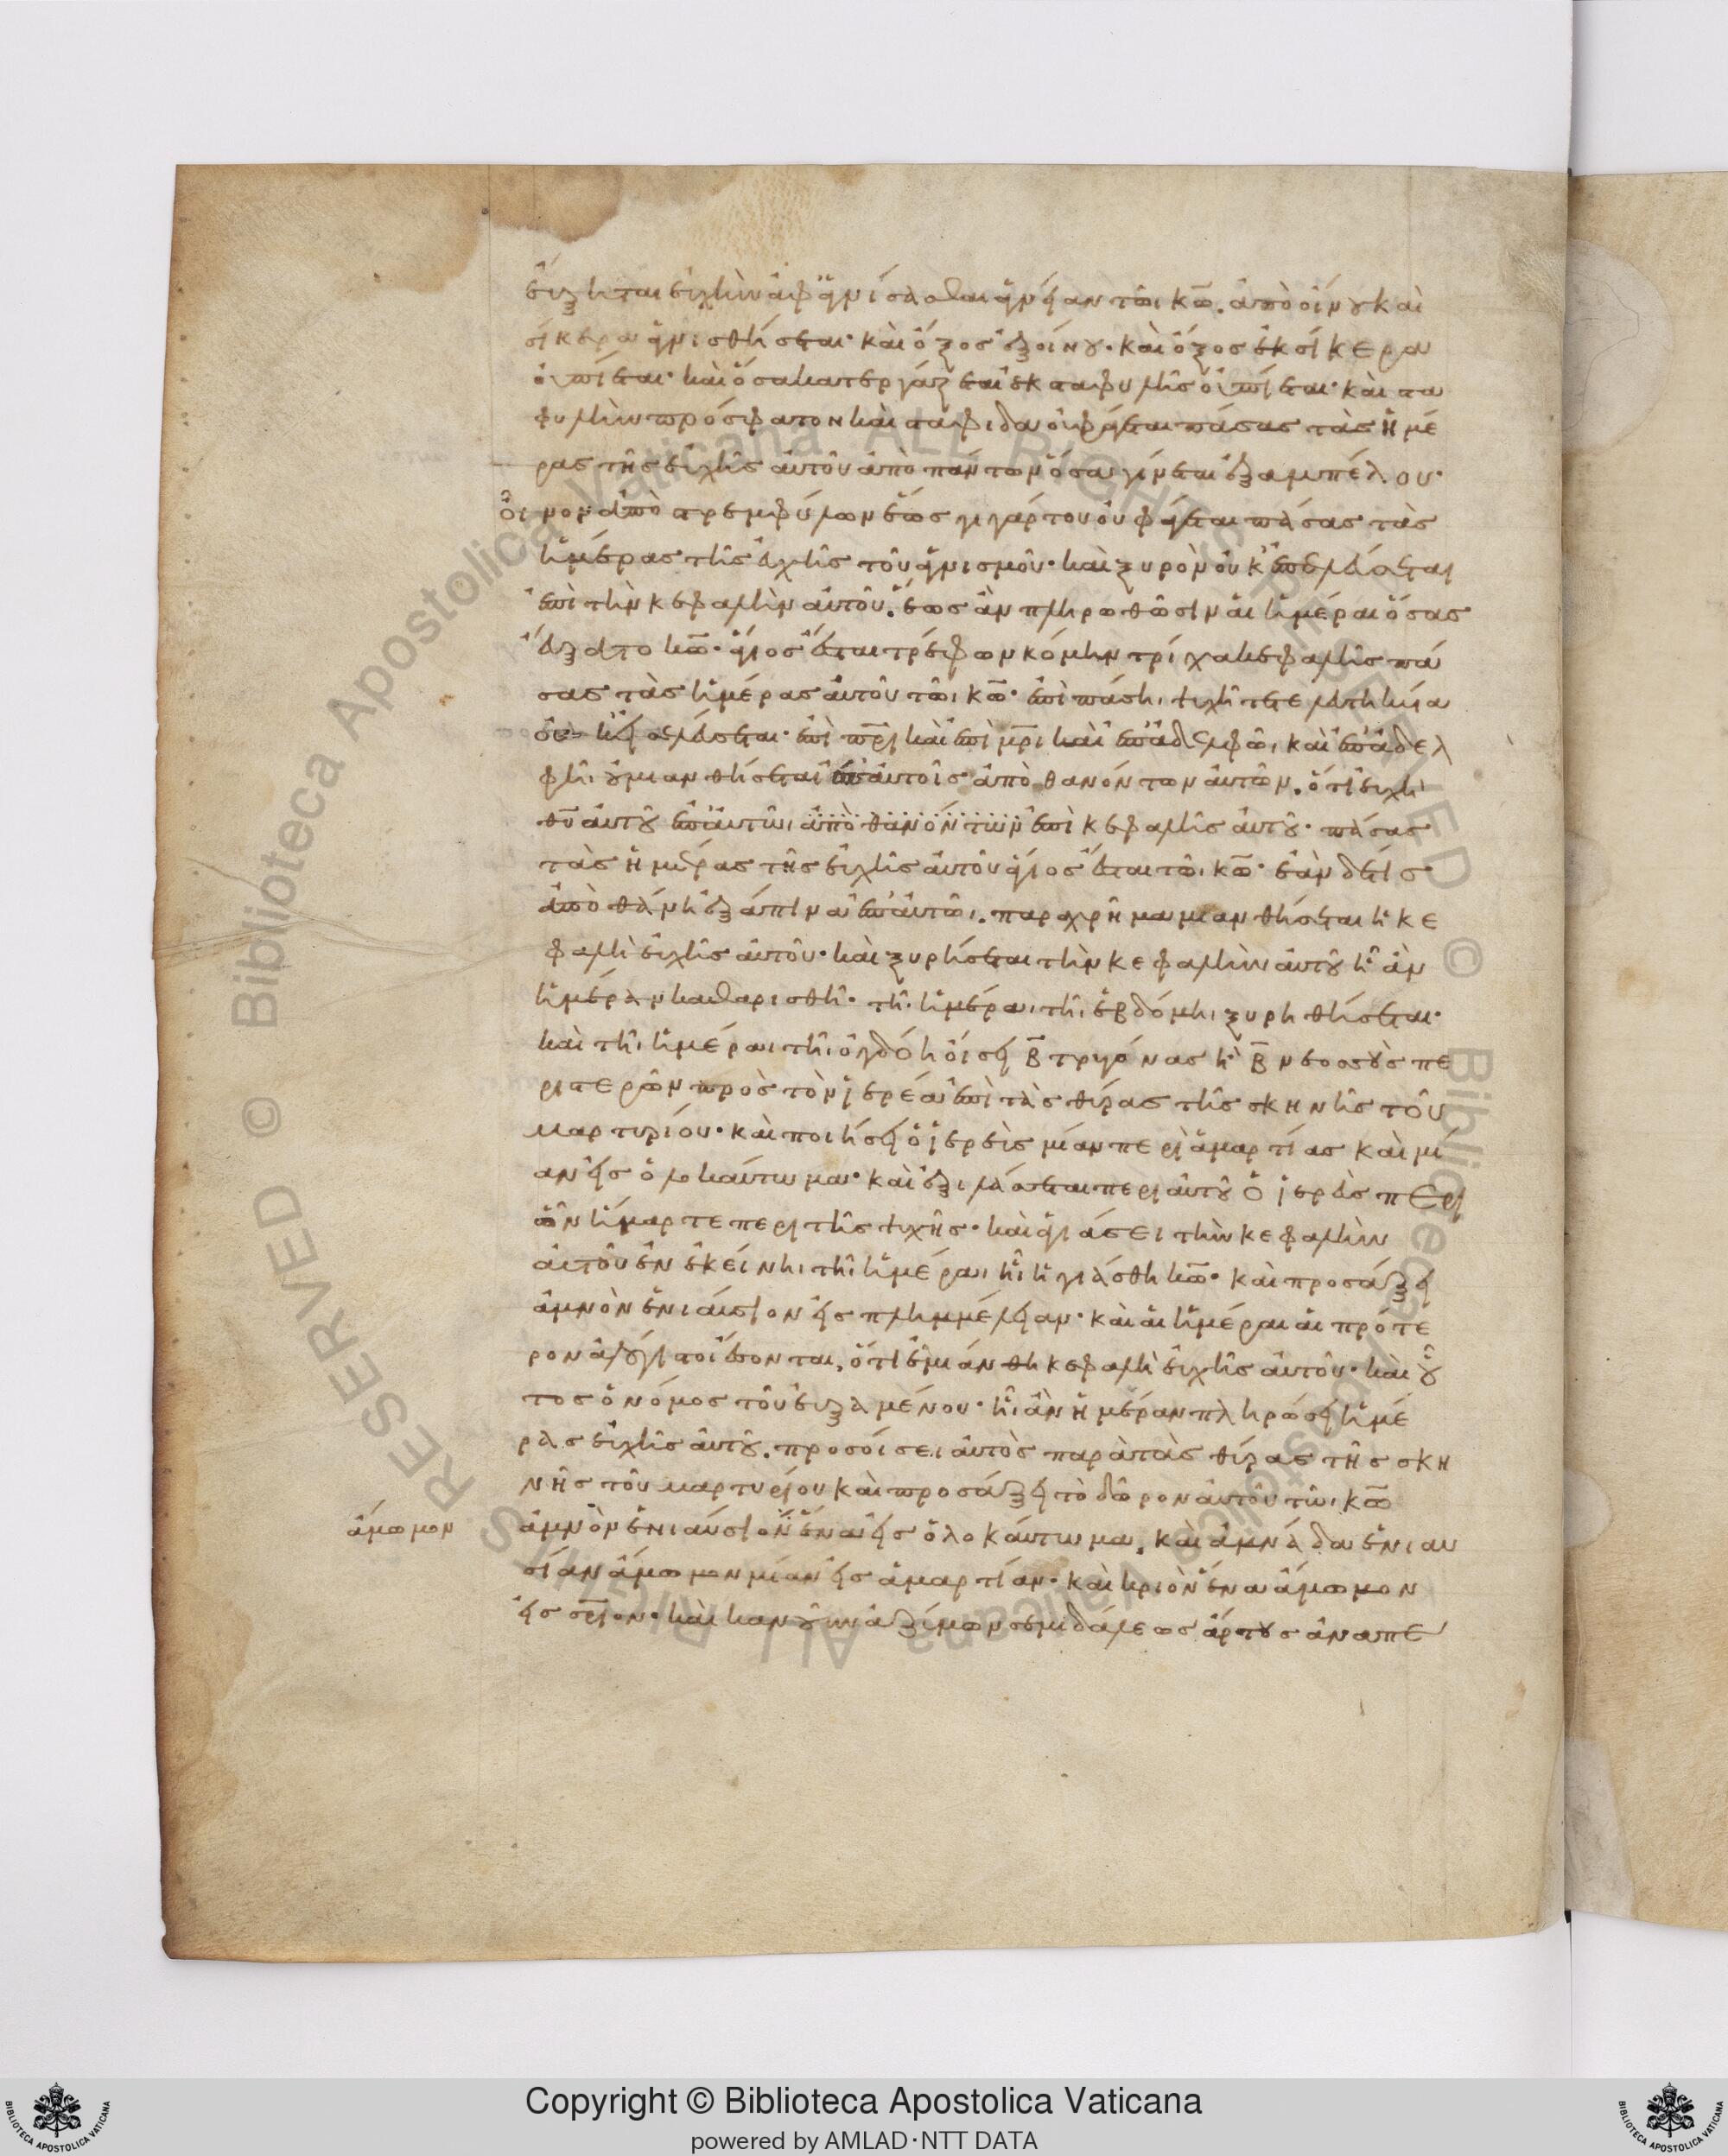 εὔξηται εὐχὴν ἀφαγνίσασθαι ἁγνείαν τῶι κω. ἀπὸ οἴνου καὶ
σίκερα ἁγνισθήσεται· καὶ ὄξος ἐξ οἴνου· καὶ ὄξος ἐκ σίκερα
οὐ πίεται· καὶ ὅσα κατεργάζεται ἐκ σταφυλῆς οὐ πίεται· καὶ στα
φυλὴν πρόσφατον καὶ σταφίδα οὐ φάγεται πάσας τὰς ἡμέ
ρας τῆς εὐχῆς αὐτοῦ ἀπὸ πάντων ὅσα γίνεται ἐξ αμπέλου·
οἶνον ἀπὸ στρεμφύλων ἕως γιγάρτου οὐ φάγεται πάσας τὰς
ἡμέρας τῆς εὐχῆς τοῦ ἁγνισμοῦ· καὶ ξυρὸν οὐκ ἐπελεύσεται
ἐπὶ τὴν κεφαλὴν αὐτοῦ. ἕως ἂν πληρωθῶσιν αἱ ἡμέραι ὅσας
εὔξατο κω· ἅγιος ἔσται τρέφων κόμην τρίχα κεφαλῆς πά
σας τὰς ἡμέρας αὐτοῦ τῶι κω· ἐπὶ πάσηι ψυχῆι τετελευτηκυία
οὐκ εἰσελεύσεται· ἐπὶ πρι καὶ ἐπὶ μρι καὶ ἐπ' ἀδελφῶι καὶ ἐπ' ἀδελ
φῆι οὐ μιανθήσεται ἐπ' αὐτοῖς ἀποθανόντων αὐτῶν. ὅτι εὐχὴ
θυ αὐτοῦ ἐπ' αὐτῶι ἀποθανόντων ἐπὶ κεφαλῆς αὐτοῦ· πάσας
τὰς ἡμέρας τῆς εὐχῆς αὐτοῦ ἅγιος ἔσται τῶι κω· ἐὰν δέ τις
ἀποθάνη ἐξάπινα ἐπ' αὐτῶι. παραχρῆμα μιανθήσεται ἡ κε
φαλὴ εὐχῆς αὐτοῦ· καὶ ξυρήσεται τὴν κεφαλὴν αὐτοῦ ἧ ἂν
ἡμέραν καθαρισθῆ· τῆι ἡμέραι τῆι ἑβδόμηι ξυρηθήσεται·
καὶ τῆι ἡμέραι τῆι ὀγδόη οἴσει β τρυγόνας ἢ β νεοσσοὺς πε
ριτερῶν πρὸς τὸν ἱερέα ἐπὶ τὰς θύρας τῆς σκηνῆς τοῦ
μαρτυρίου· καὶ ποιήσει ὁ ἱερεὺς μίαν περὶ ἁμαρτίας καὶ μί
αν εἰς ὁλοκαύτωμα· καὶ ἐξιλάσεται περι αὐτοῦ ὁ ἱερεὺς περι
ὧν ἥμαρτε περι τῆς ψυχῆς· καὶ ἁγιάσει τὴν κεφαλὴν
αὐτοῦ ἐν ἐκείνηι τῆι ἡμέραι ἧι ἡγιάσθη κω· καὶ προσάξει
ἀμνὸν ἐνιαύσιον εἰς πλημμέλειαν· καὶ αἱ ἡμέραι αἱ πρότε
ρον ἄλογοι ἔσονται, ὅτι ἐμιάνθη κεφαλὴ εὐχῆς αὐτοῦ· καὶ οὗ
τος ὁ νόμος τοῦ εὐξαμένου· ἧι ἂν ἡμέραν πληρώσει ἡμέ
ρας εὐχῆς αὐτοῦ. προσοίσει αὐτὸς παρὰ τὰς θύρας τῆς σκη
νῆς τοῦ μαρτυρίου καὶ προσάξει τὸ δῶρον αὐτοῦ τῶι κω
ἄμωμον
ἀμνὸν ἐνιαύσιον ἕνα εἰς ὁλοκαύτωμα, καὶ ἀμνάδα ἐνιαυ
σίαν ἄμωμον μίαν εἰς ἁμαρτίαν· καὶ κριὸν ἕνα ἄμωμον
εἰς σριον· καὶ κανοῦν ἀζύμων σεμιδάλεως ἄρτους ἀναπε